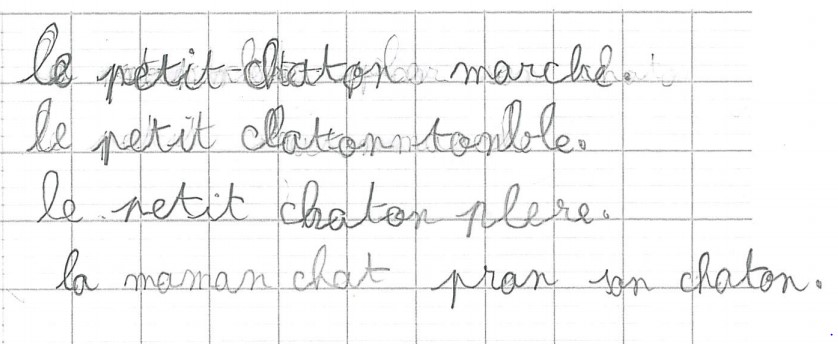 le petit chaton marche.
le petit chaton tonble.
le petit chaton plere.
la maman chat pran son chaton.